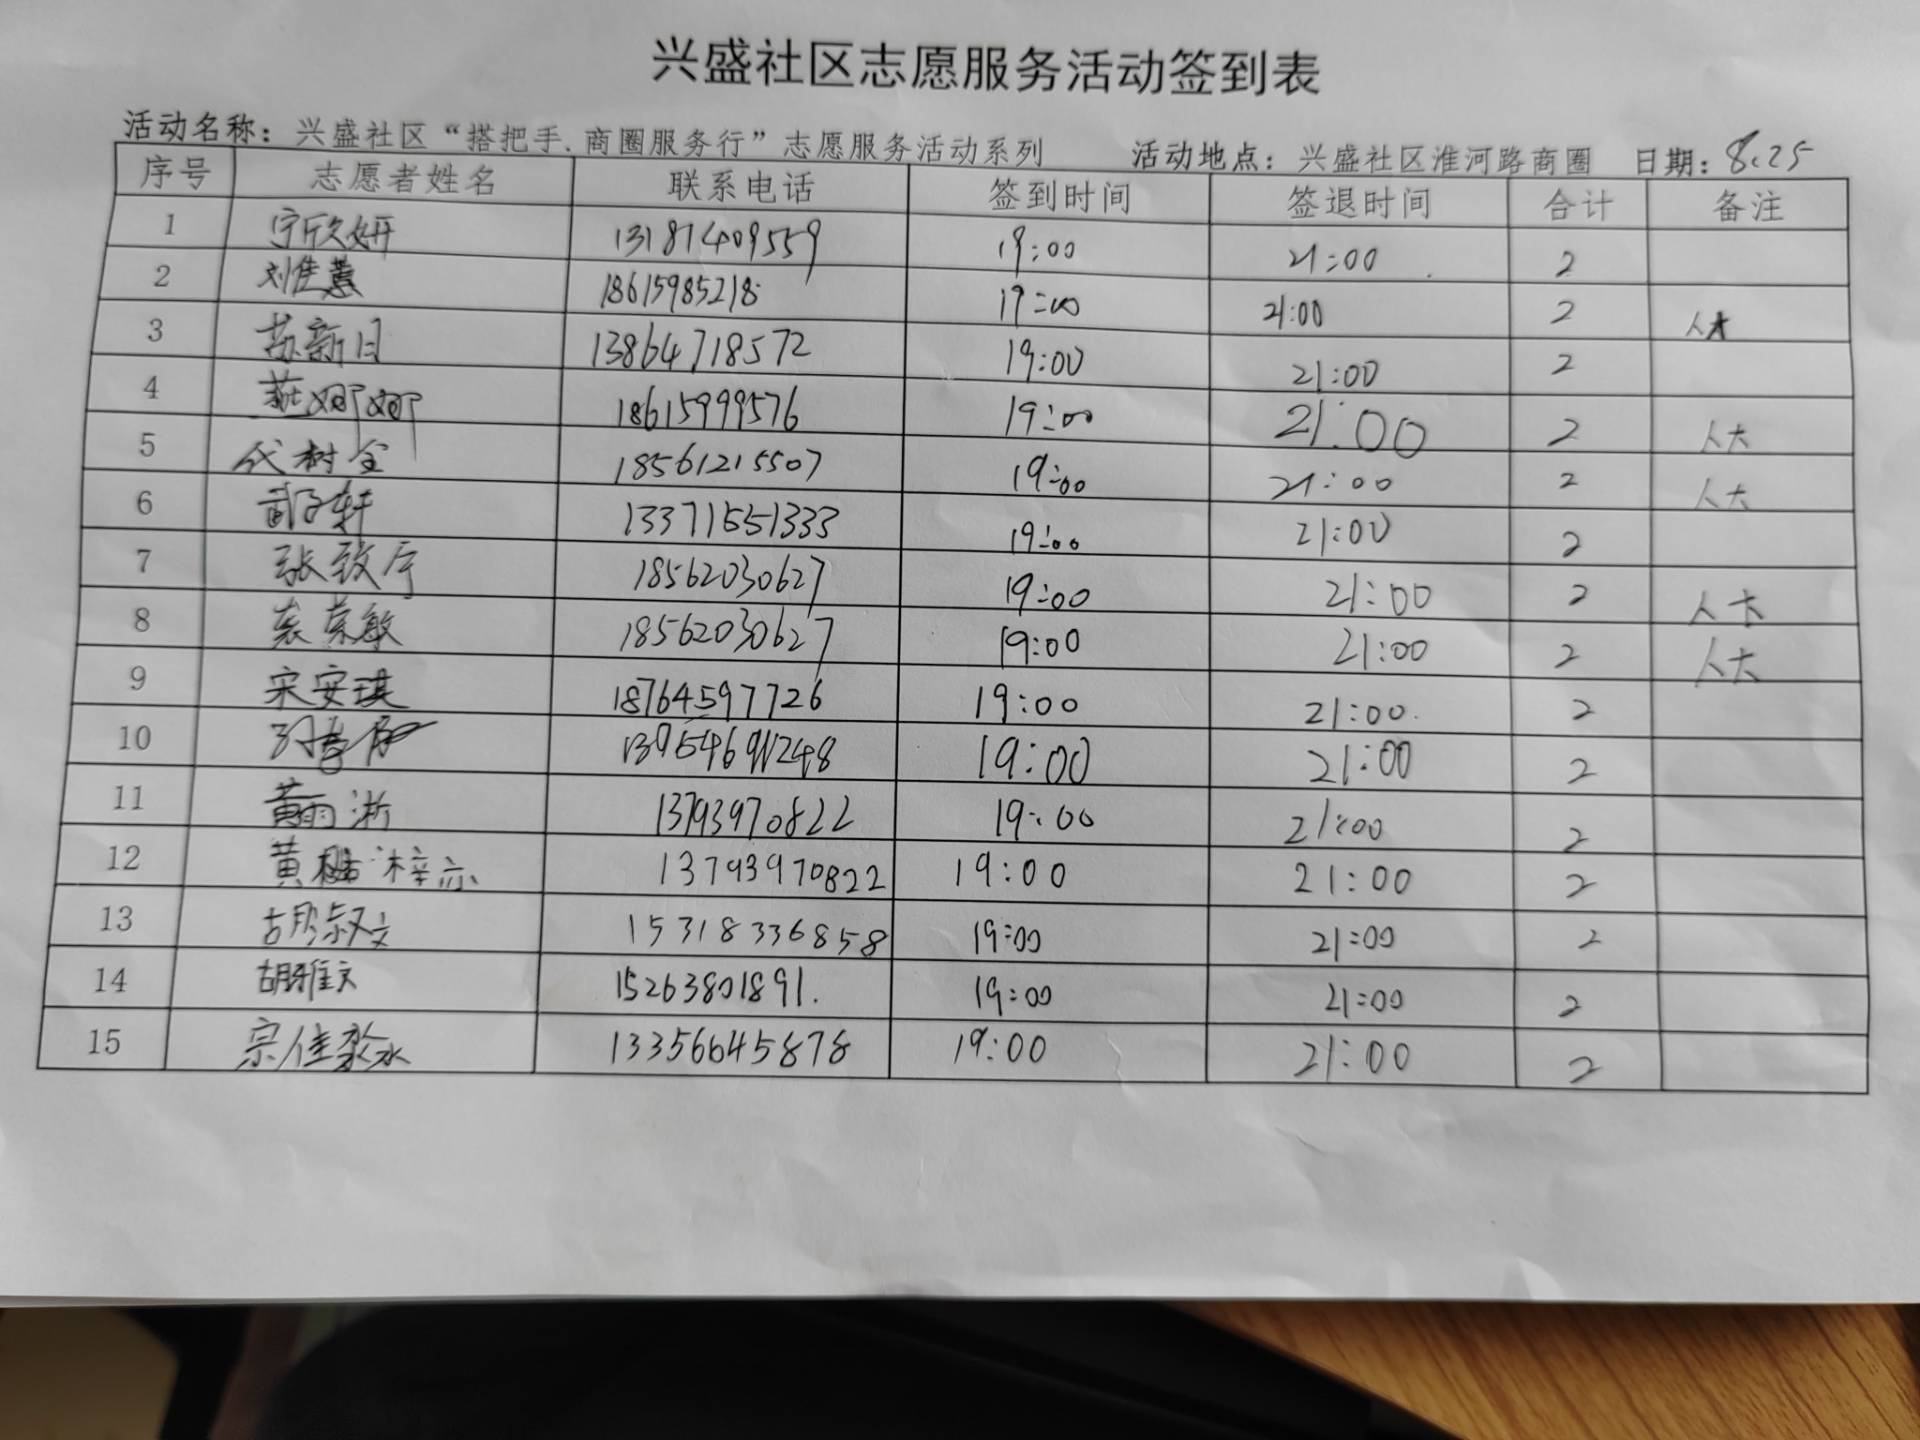 兴盛社区志愿服务活动签到表
活动名称：兴盛社区“搭把手.商圈服务行”志愿服务活动系列 活动地点：兴盛社区淮河路商圈 日期：8.25
序号 志愿者姓名 联系电话 签到时间 签退时间 合计 备注
1 宁欣妍 13181409559 19:00 21:00 2
2 刘佳慧 18615985218 19:00 21:00 2 人大
3 苏新日 13864718572 19:00 21:00 2
4 燕娜娜 18615999576 19:00 21:00 2 人大
5 代树全 18561215507 19:00 21:00 2 人大
6 武子轩 13371551333 19:00 21:00 2
7 张致宁 18562030627 19:00 21:00 2 人大
8 袁荣敏 18562030627 19:00 21:00 2 人大
9 宋安琪 18764597726 19:00 21:00 2
10 19:00 21:00 2
11 黄雨浙 13793970822 19:00 21:00 2
12 黄 梓亦 13793970822 19:00 21:00 2
13 胡淑文 15318336858 19:00 21:00 2
14 胡雅文 15263801891. 19:00 21:00 2
15 宗佳淼 13356645878 19:00 21:00 2